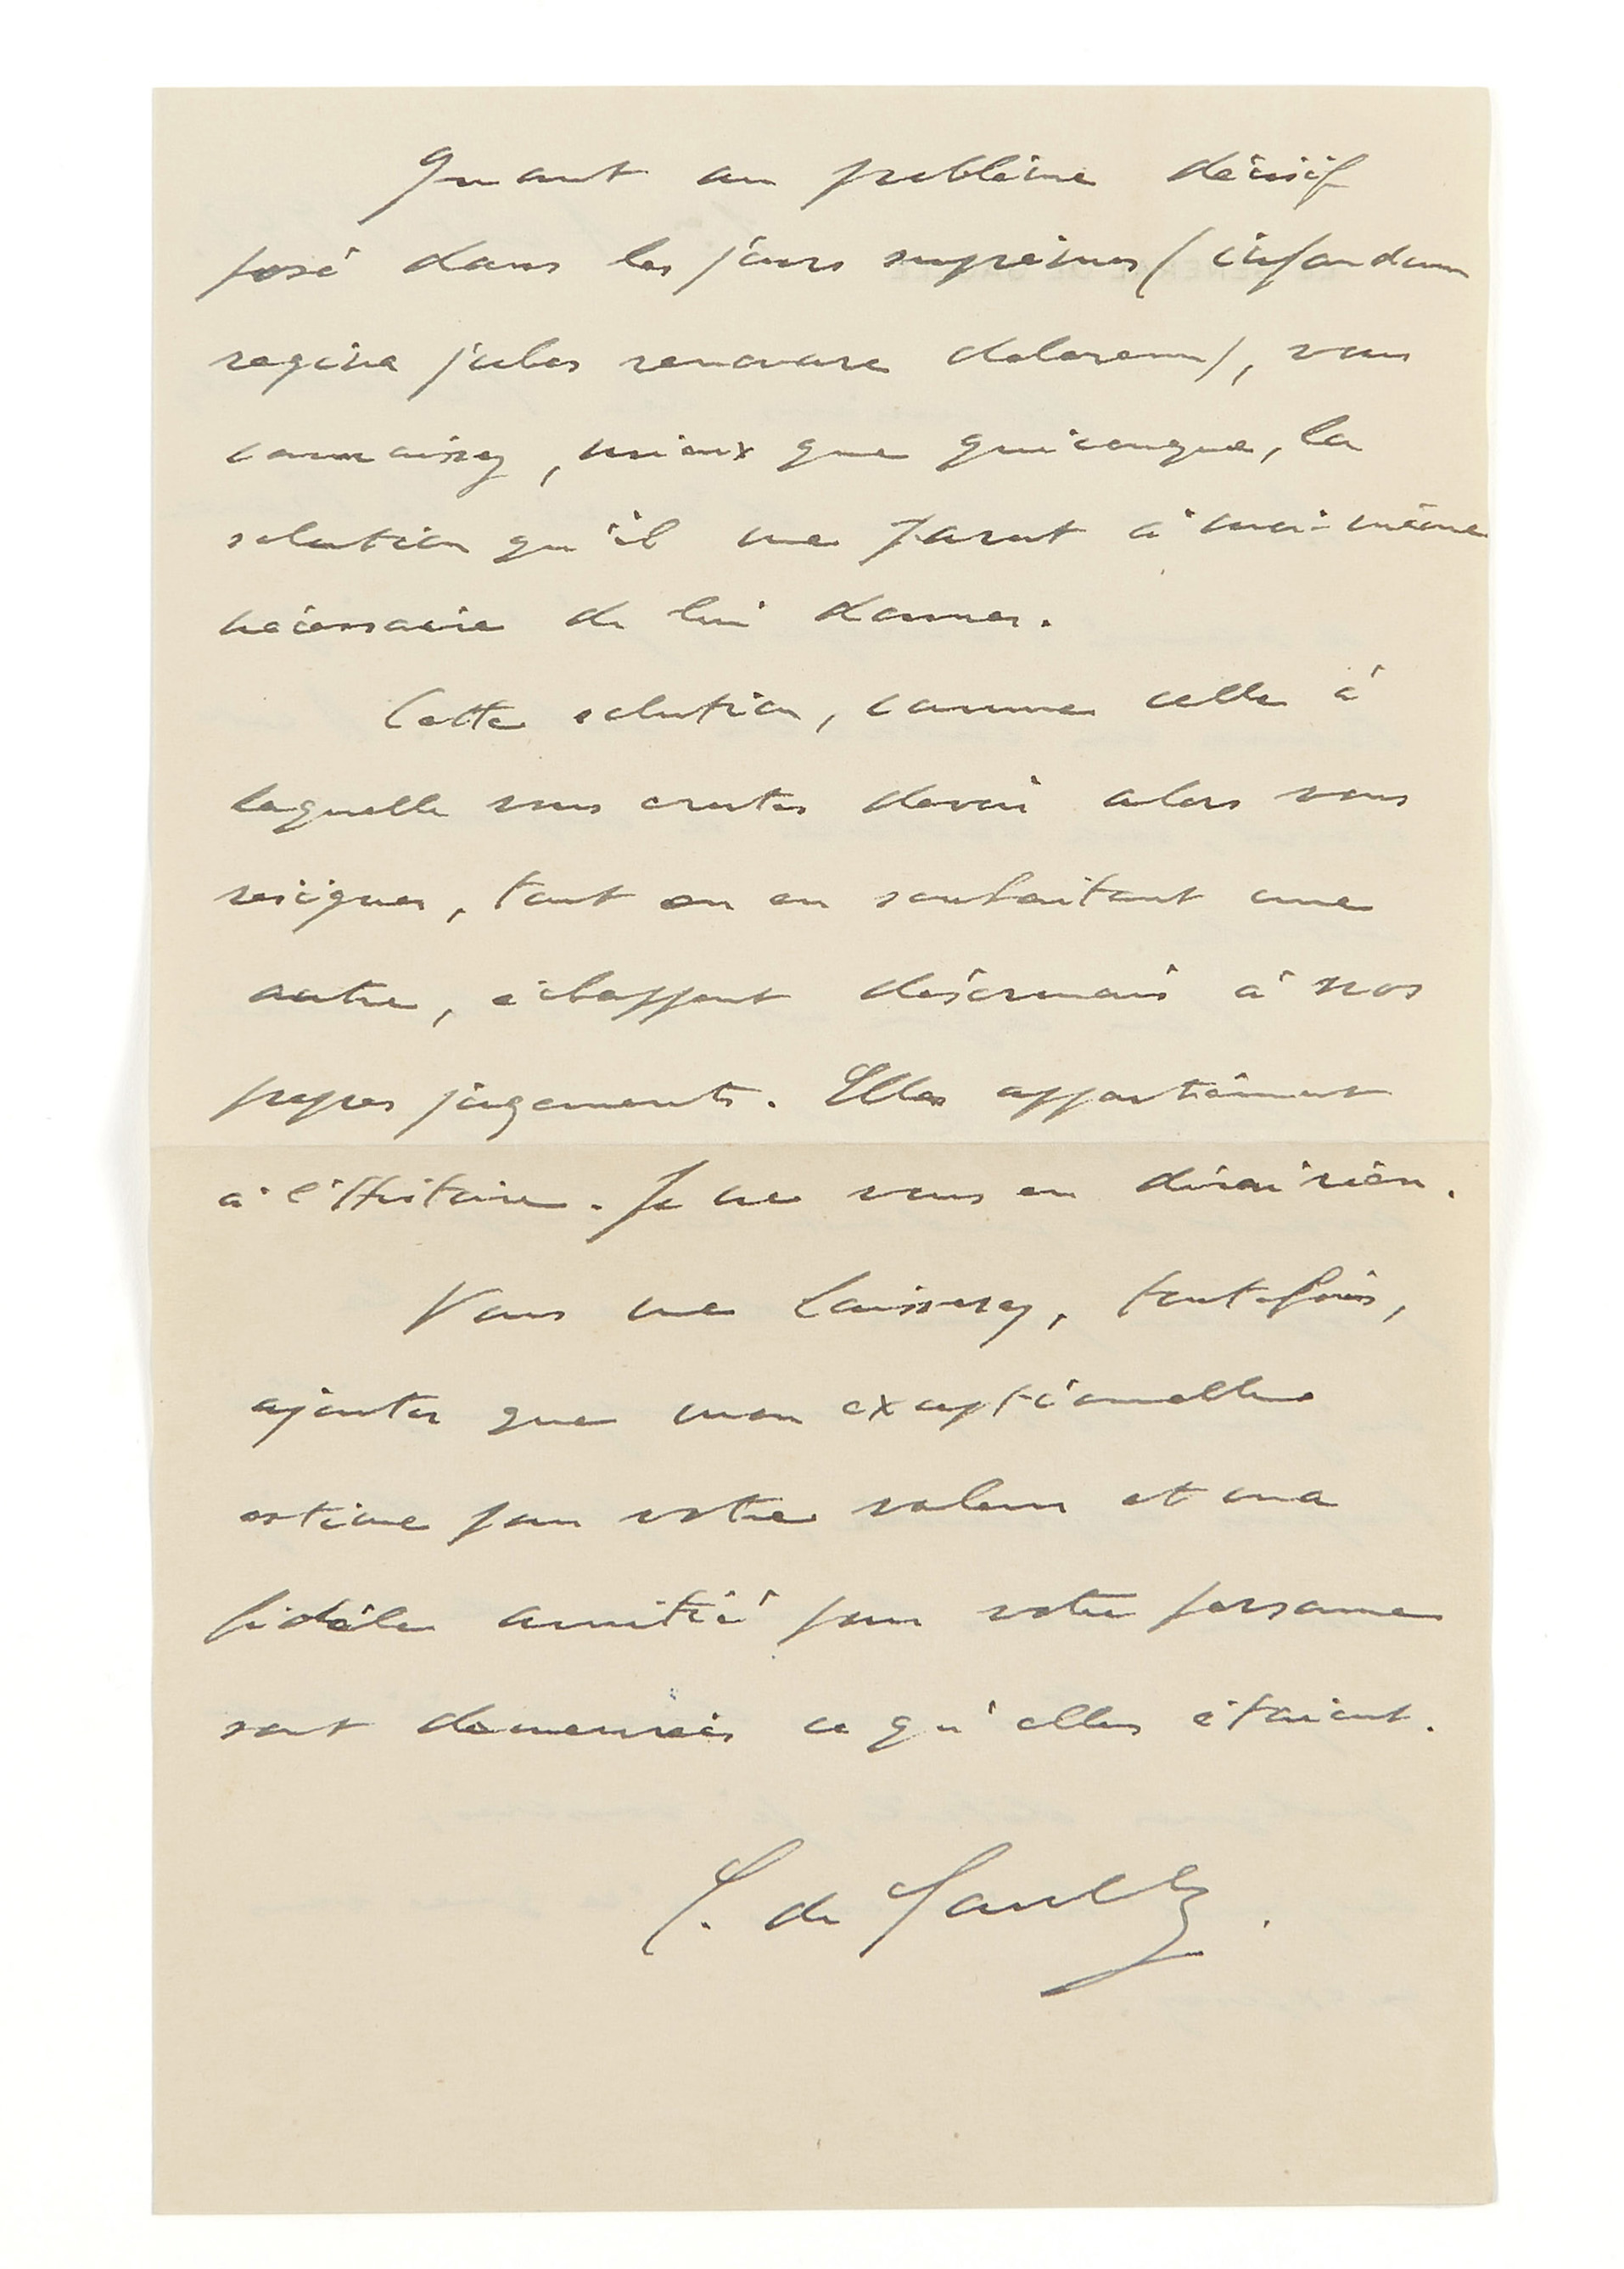 Quant au problème décisif
posé dans les jours suprêmes (infandum
regina jubes renovare dolorem), vous
connaissez, mieux que quiconque, la
solution qu'il me parut à moi-même
nécessaire de lui donner.
Cette solution, comme celle à
laquelle vous crutes devoir alors vous
résigner, tout en en souhaitant une
autre, échappent désormais à nos
propres jugements. Elles appartiennent
à l'Histoire. Je ne vous en dirai rien.
Vous me laisserez, toutefois,
ajouter que mon exceptionnelle
estime pour votre valeur et ma
fidèle amitié pour votre personne
sont demeurées ce qu'elles étaient.
C. de Gaulle.